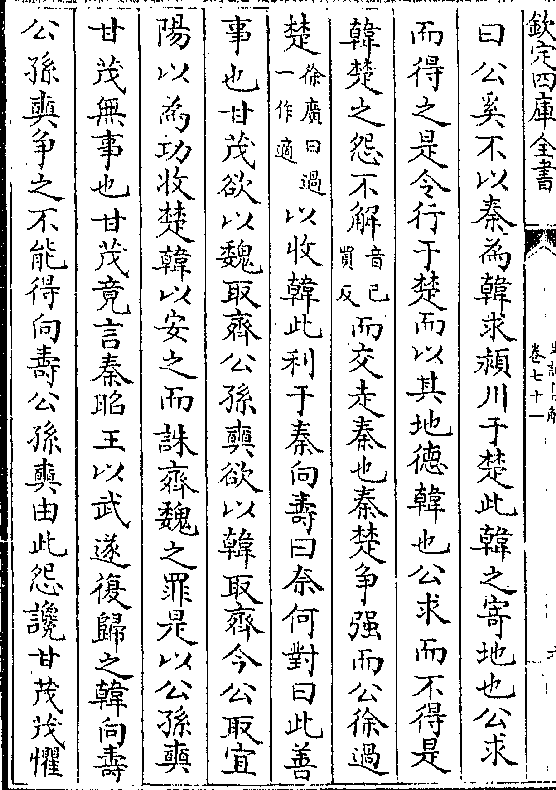 欽定四庫全書
卷七十一
曰公奚不以秦為韓求潁川于楚此韓之寄地也公求
而得之是令行于楚而以其地德韓也公求而不得是
韓楚之怨不解音己買反而交走秦也秦楚争强而公徐過
楚徐廣曰過一作適以收韓此利于秦向壽曰奈何對曰此善
事也甘茂欲以魏取齊公孫奭欲以韓取齊今公取宜
陽以為功收楚韓以安之而誅齊魏之罪是以公孫奭
甘茂無事也甘茂竟言秦昭王以武遂復歸之韓向壽
公孫奭争之不能得向壽公孫奭由此怨讒甘茂茂懼